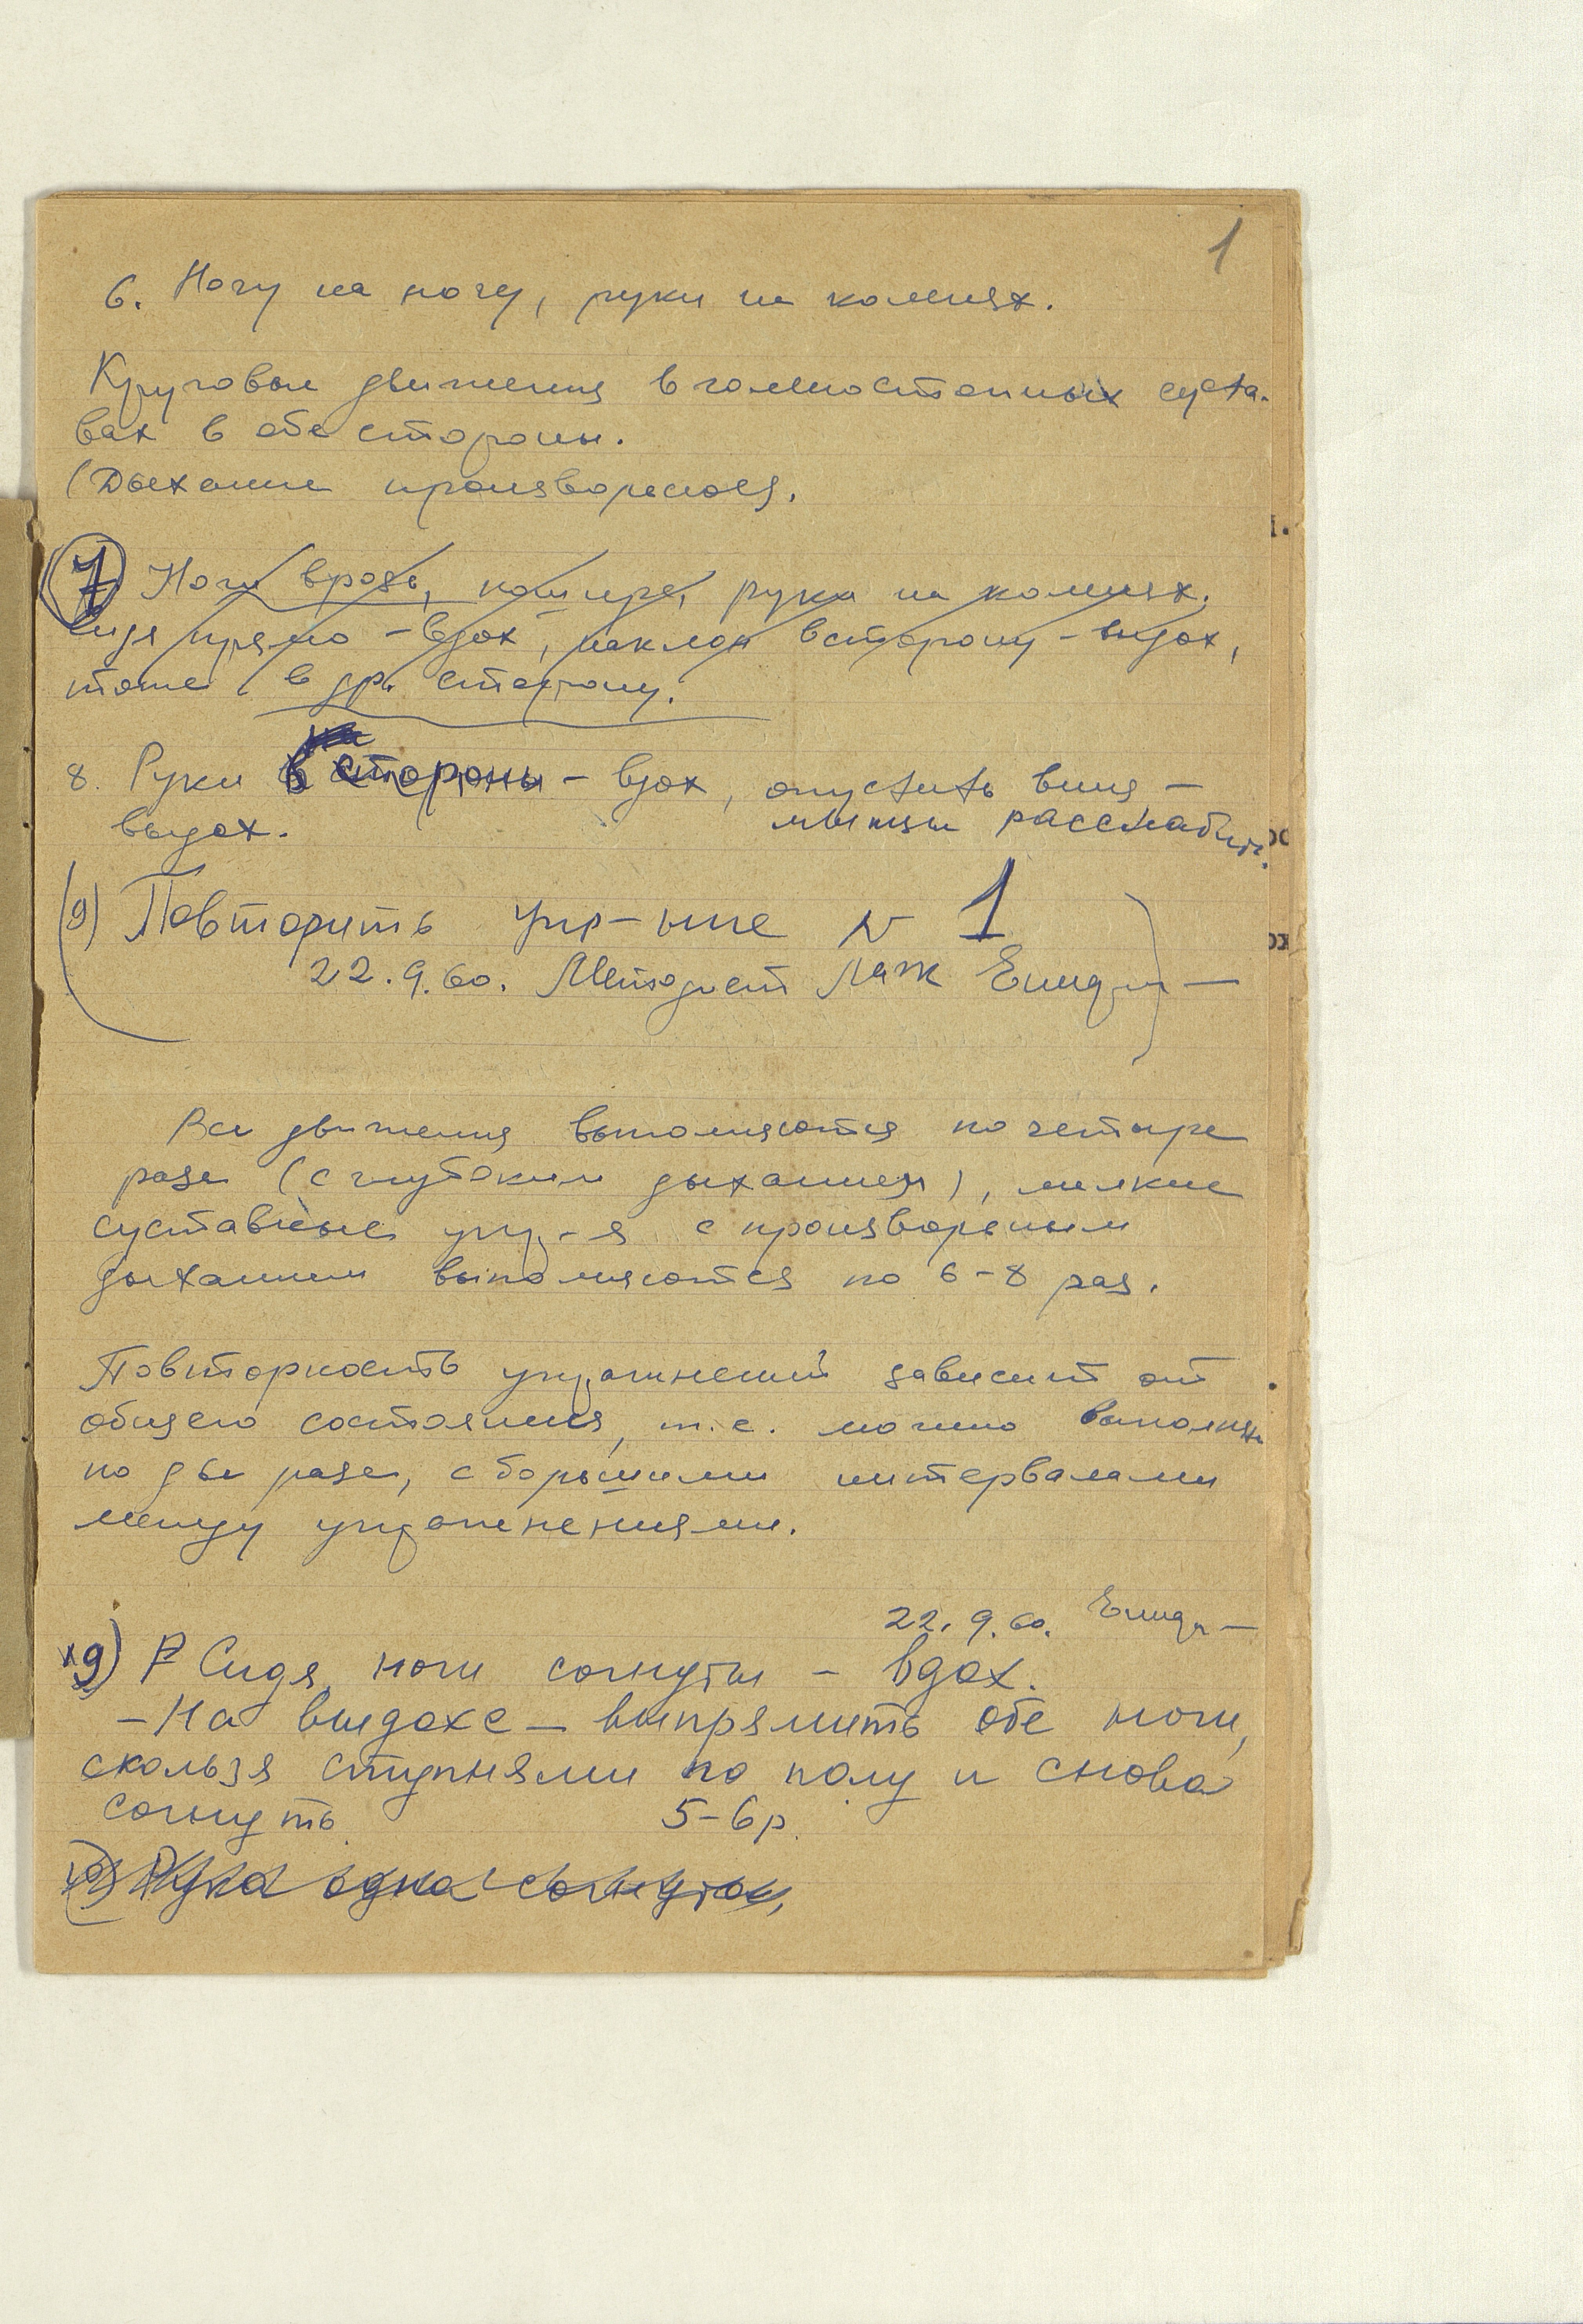 1
6. Ногу на ногу, руки на коленях.
Круговые движения в голеностопных суста-
вах в обе стороны.
(Дыхание произвольное).
7 Ноги врозь, пошире, руки на коленях.
Сидя прямо – вдох, наклон в сторону – выдох,
тоже в др. сторону.
8. Руки в стороны – вдох, опустить вниз –
выдох. мышцы расслабить.
(9) Повторить упр-ние N 1
22.9.60. Методист
Все движения выполняются по четыре
раза (с глубоким дыханием), мелкие
суставные упр-я с произвольным
дыханием выполняются по 6–8 раз.
Повторность упражнений зависит от
общего состояния, т.е. можно выполнять
по два раза, с большими интервалами
между упражнениями.
22.9.60.
9) Сидя, ноги согнуты – вдох.
– На выдохе – выпрямить обе ноги,
скользя ступнями по полу и снова
согнуть 5–6 р.
Рука одна согнута,